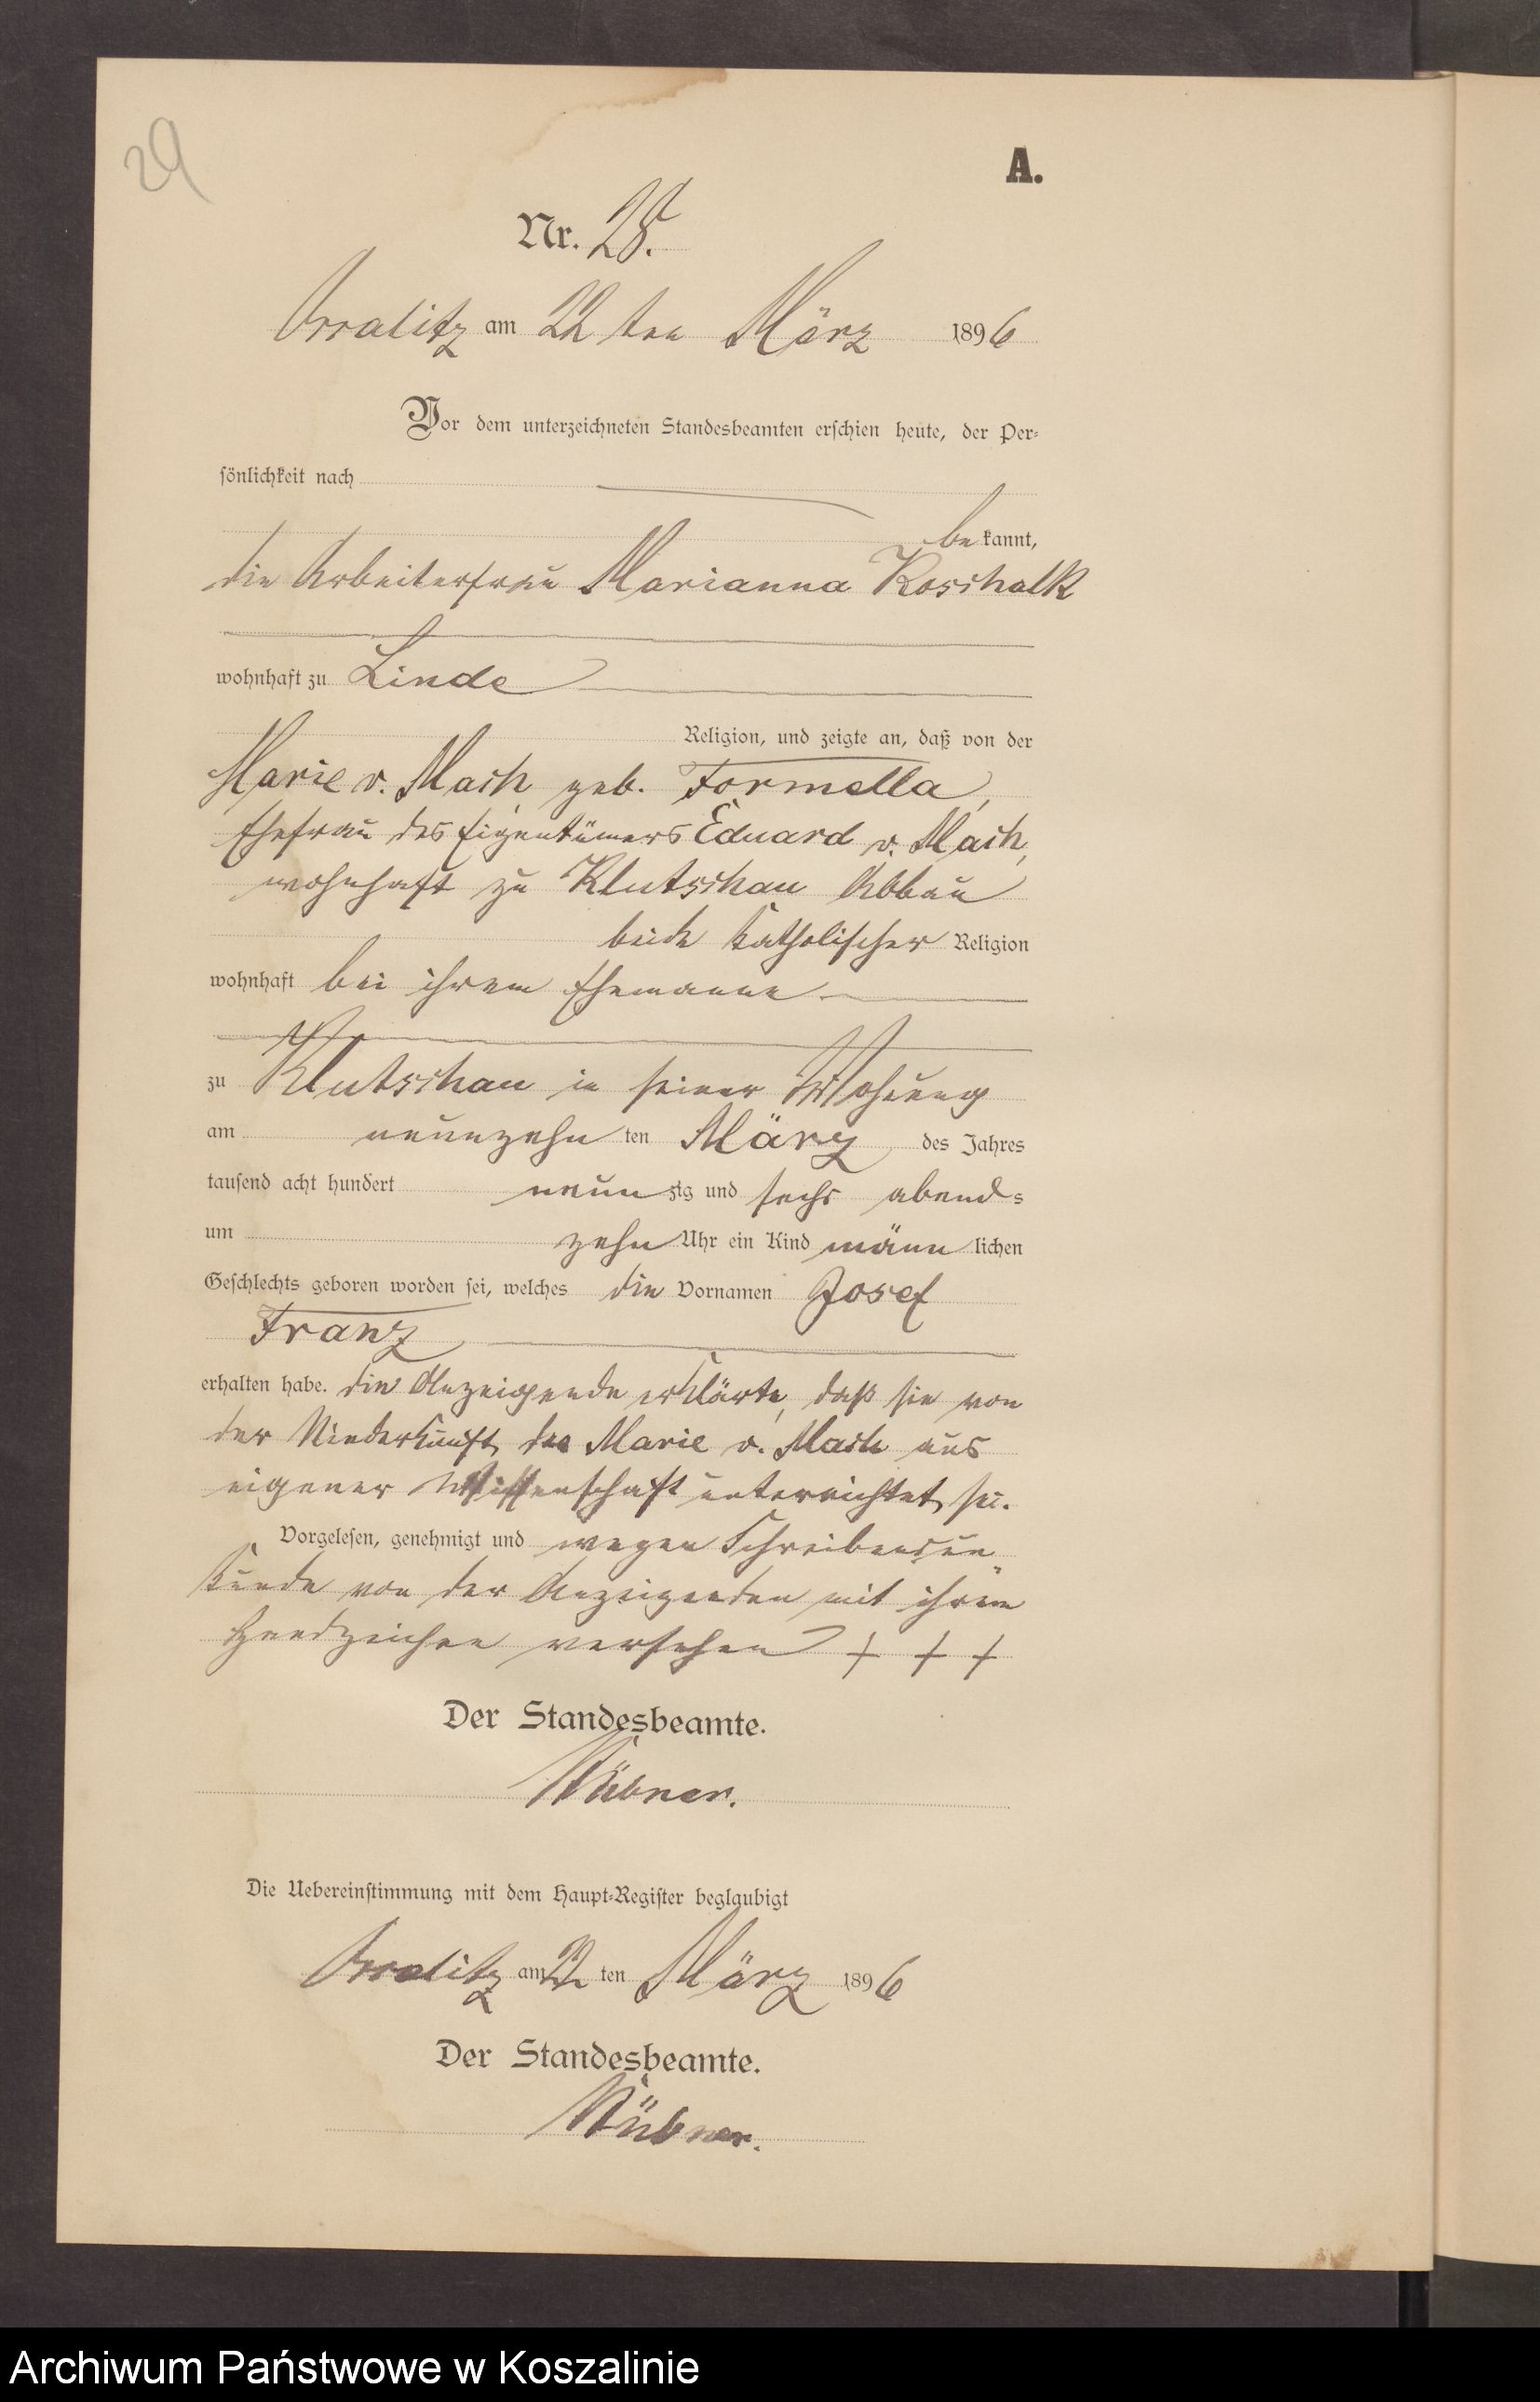 29
A.
Nr. 28.
Ossalitz am 22 ten März 1896
Vor dem unterzeichneten Standesbeamten erschien heute, der Per-
sönlichkeit nach
be kannt,
die Arbeiterfrau Marianna Koschalk
wohnhaft zu Linde
Religion, und zeigte an, daß von der
Marie v. Mach geb. Formella,
Ehefrau des Eigentümers Eduard v. Mach,
wohnhaft zu Klutschau Abbau
beide katholischer Religion
wohnhaft bei ihrem Ehemanne
zu Klutschau in seiner Wohnung
am neunzehn ten März des Jahres
tausend acht hundert neun zig und sechs abends
um zehn Uhr ein Kind männ lichen
Geschlechts geboren worden sei, welches die Vornamen Josef
Franz
erhalten habe. die Anzeigende erklärte, daß sie von
der Niederkunft der Marie v. Mach aus
eigener Wissenschaft unterrichtet sei.
Vorgelesen, genehmigt und wegen Schreibensun
kunde von der Anzeigenden mit ihrem
Handzeichen versehen + + +
Der Standesbeamte.
Die Uebereinstimmung mit dem Haupt-Register beglaubigt
Ossalitz am 22 ten März 1896
Der Standesbeamte.
Archiwum Państwowe w Koszalinie